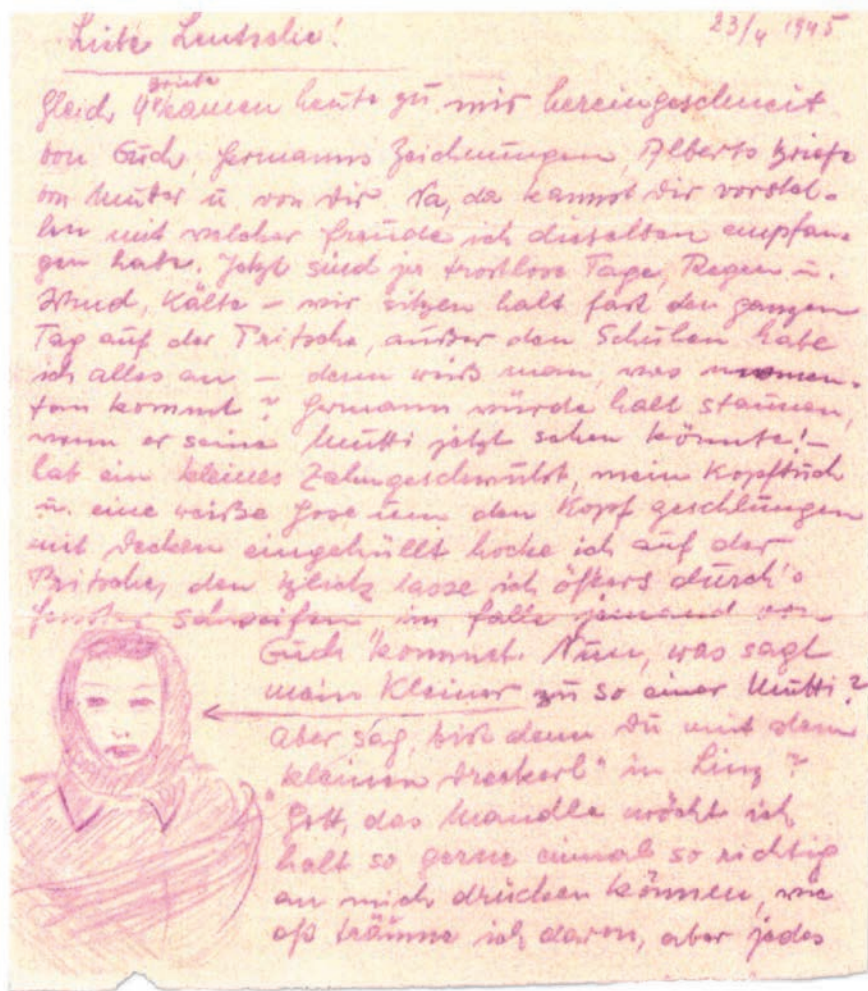 23/4 1945
Liebe Leutschie!
Briefe
Gleich 4 kamen heute zu mir hereingeschneit
von Euch, Hermanns Zeichnungen, Alberts Briefe
von Mutter u. von Dir. Na, da kannst Dir vorstel-
len mit welcher Freude ich dieselben empfan-
gen habe. Jetzt sind ja trostlose Tage, Regen u.
Wind, Kälte – wir sitzen halt fast den ganzen
Tag auf der Pritsche, außer den Schuhen habe
ich alles an – denn weiß man, was momen-
tan kommt? Hermann würde halt staunen,
wenn er seine Mutti jetzt sehen könnte! –
hab ein kleines Zahngeschwürl, mein Kopftuch
u. eine weiße Hose um den Kopf geschlungen
mit Decken eingehüllt hocke ich auf der
Pritsche, den Blick lasse ich öfters durch's
Fenster schweifen im Falle jemand von
Euch kommt. Nun, was sagt
mein Kleiner zu so einer Mutti?
Aber sag, bist denn Du mit dem
"kleinen Dreckerl" in Linz?
Gott, das Mandle möcht ich
halt so gerne einmal so richtig
an mich drücken können, wie
oft träume ich davon, aber jedes